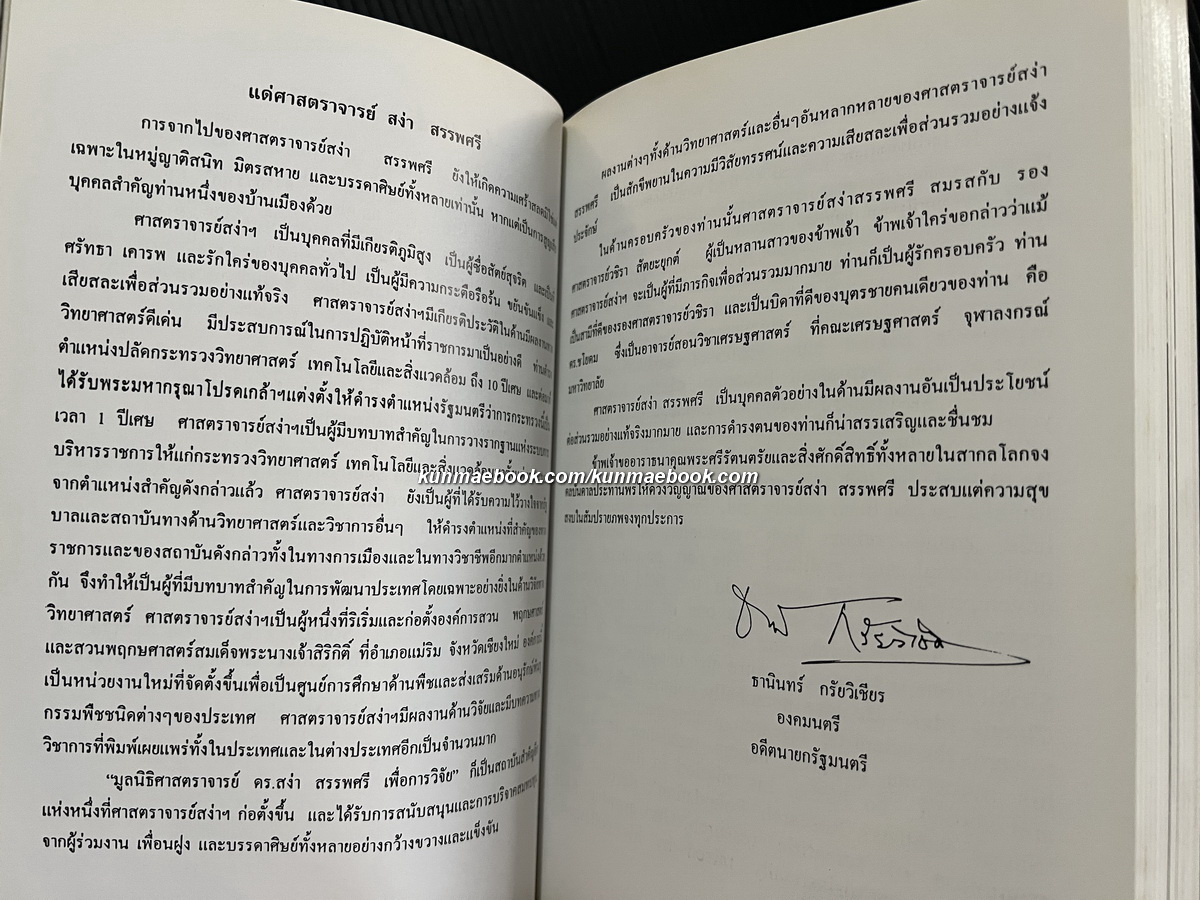 แด่ศาสตราจารย์ สง่า สรรพศรี
การจากไปของศาสตราจารย์สง่า สรรพศรี ยังให้เกิดความเศร้าสลดมิใช่
เฉพาะในหมู่ญาติสนิท มิตรสหาย และบรรดาศิษย์ทั้งหลายเท่านั้น หากแต่เป็นการสูญเสีย
บุคคลสำคัญท่านหนึ่งของบ้านเมืองด้วย
ศาสตราจารย์สง่าฯ เป็นบุคคลที่มีเกียรติภูมิสูง เป็นผู้ซื่อสัตย์สุจริต และเป็นที่
ศรัทธา เคารพ และรักใคร่ของบุคคลทั่วไป เป็นผู้มีความกระตือรือร้น ขยันขันแข็ง และ
เสียสละเพื่อส่วนรวมอย่างแท้จริง ศาสตราจารย์สง่าฯมีเกียรติประวัติในด้านมีผลงานทาง
วิทยาศาสตร์ดีเด่น มีประสบการณ์ในการปฏิบัติหน้าที่ราชการมาเป็นอย่างดี
ตำแหน่งปลัดกระทรวงวิทยาศาสตร์ เทคโนโลยีและสิ่งแวดล้อม ถึง 10 ปีเศษ และต่อมาก็
ได้รับพระมหากรุณาโปรดเกล้าฯแต่งตั้งให้ดำรงตำแหน่งรัฐมนตรีว่าการกระทรวงนี้เป็น
เวลา 1 ปีเศษ ศาสตราจารย์สง่าฯเป็นผู้มีบทบาทสำคัญในการวางรากฐานแห่งระบบการ
บริหารราชการให้แก่กระทรวงวิทยาศาสตร์ เทคโนโลยีและสิ่งแวดล้อม
kunmaebook.com/kunmaebook.com
จากตำแหน่งสำคัญดังกล่าวแล้ว ศาสตราจารย์สง่า ยังเป็นผู้ที่ได้รับความไว้วางใจจากรัฐ
บาลและสถาบันทางด้านวิทยาศาสตร์และวิชาการอื่นๆ ให้ดำรงตำแหน่งที่สำคัญของทาง
ราชการและของสถาบันดังกล่าวทั้งในทางการเมืองและในทางวิชาชีพอีกมากตำแหน่งด้วย
กัน จึงทำให้เป็นผู้ที่มีบทบาทสำคัญในการพัฒนาประเทศโดยเฉพาะอย่างยิ่งในด้านวิจัยทาง
วิทยาศาสตร์ ศาสตราจารย์สง่าฯเป็นผู้หนึ่งที่ริเริ่มและก่อตั้งองค์การสวน พฤกษศาสตร์
และสวนพฤกษศาสตร์สมเด็จพระนางเจ้าสิริกิติ์ ที่อำเภอแม่ริม จังหวัดเชียงใหม่ องค์การนี้
เป็นหน่วยงานใหม่ที่จัดตั้งขึ้นเพื่อเป็นศูนย์การศึกษาด้านพืชและส่งเสริมด้านอนุรักษ์พันธุ
กรรมพืชชนิดต่างๆของประเทศ ศาสตราจารย์สง่าฯมีผลงานด้านวิจัยและมีบทความทาง
วิชาการที่พิมพ์เผยแพร่ทั้งในประเทศและในต่างประเทศอีกเป็นจำนวนมาก
“มูลนิธิศาสตราจารย์ ดร.สง่า สรรพศรี เพื่อการวิจัย” ก็เป็นสถาบันสำคัญอีก
แห่งหนึ่งที่ศาสตราจารย์สง่าฯ ก่อตั้งขึ้น และได้รับการสนับสนุนและการบริจาคสมทบทุน
จากผู้ร่วมงาน เพื่อนฝูง และบรรดาศิษย์ทั้งหลายอย่างกว้างขวางและแข็งขัน
ผลงานต่างๆทั้งด้านวิทยาศาสตร์และอื่นๆอันหลากหลายของศาสตราจารย์สง่า
สรรพศรี เป็นสักขีพยานในความมีวิสัยทรรศน์และความเสียสละเพื่อส่วนรวมอย่างแจ้ง
ประจักษ์
ในด้านครอบครัวของท่านนั้นศาสตราจารย์สง่าสรรพศรี สมรสกับ รอง
ศาสตราจารย์วชิรา สัตยะยุกต์ ผู้เป็นหลานสาวของข้าพเจ้า ข้าพเจ้าใคร่ขอกล่าวว่าแม้
ศาสตราจารย์สง่าฯ จะเป็นผู้ที่มีภารกิจเพื่อส่วนรวมมากมาย ท่านก็เป็นผู้รักครอบครัว ท่าน
เป็นสามีที่ดีของรองศาสตราจารย์วชิรา และเป็นบิดาที่ดีของบุตรชายคนเดียวของท่าน คือ
ดร.ชโยดม ซึ่งเป็นอาจารย์สอนวิชาเศรษฐศาสตร์ ที่คณะเศรษฐศาสตร์ จุฬาลงกรณ์
มหาวิทยาลัย
ศาสตราจารย์สง่า สรรพศรี เป็นบุคคลตัวอย่างในด้านมีผลงานอันเป็นประโยชน์
ต่อส่วนรวมอย่างแท้จริงมากมาย และการดำรงตนของท่านก็น่าสรรเสริญและชื่นชม
ข้าพเจ้าขออาราธนาคุณพระศรีรัตนตรัยและสิ่งศักดิ์สิทธิ์ทั้งหลายในสากลโลกจง
ดลบันดาลประทานพรให้ดวงวิญญาณของศาสตราจารย์สง่า สรรพศรี ประสบแต่ความสุข
สงบในสัมปรายภพจงทุกประการ
ธานินทร์ กรัยวิเชียร
องคมนตรี
อดีตนายกรัฐมนตรี